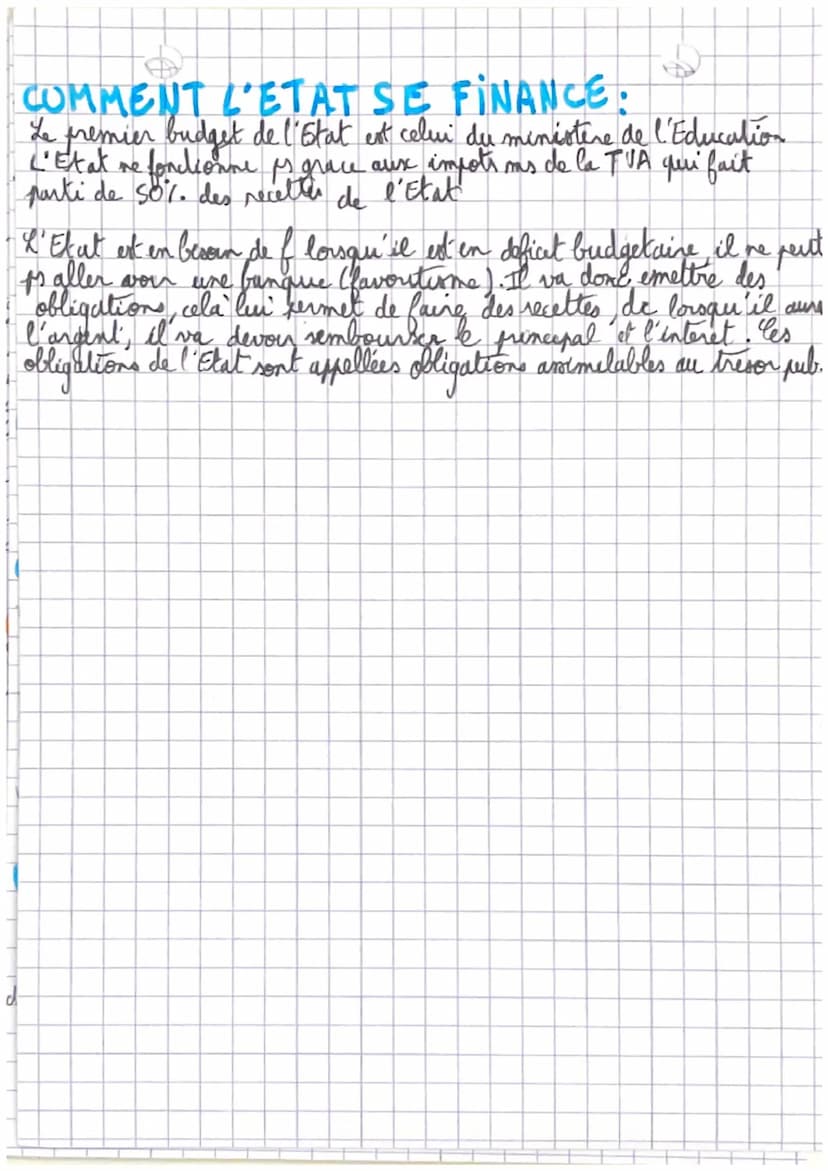 COMMENT L'ETAT SE FINANCE :
Le premier budget de l'Etat est celui du ministere de l'Education
L'Etat ne fonctionne ps grace aux impots ms de la TVA qui fait
parti de 50%. des recettes de l'Etat
L'Etat est en besoin de f lorsqu'il est en deficit budgetaire, il ne peut
ps aller voir une banque (favoutisme). Il va donc emettre des
obligations, cela lui permet de faire des recettes, dc lorsqu'il aura
l'argent, il va devoir rembourser le principal et l'interet. Ces
obligations de l'Etat sont appellées obligations assimelables au tresor pub.